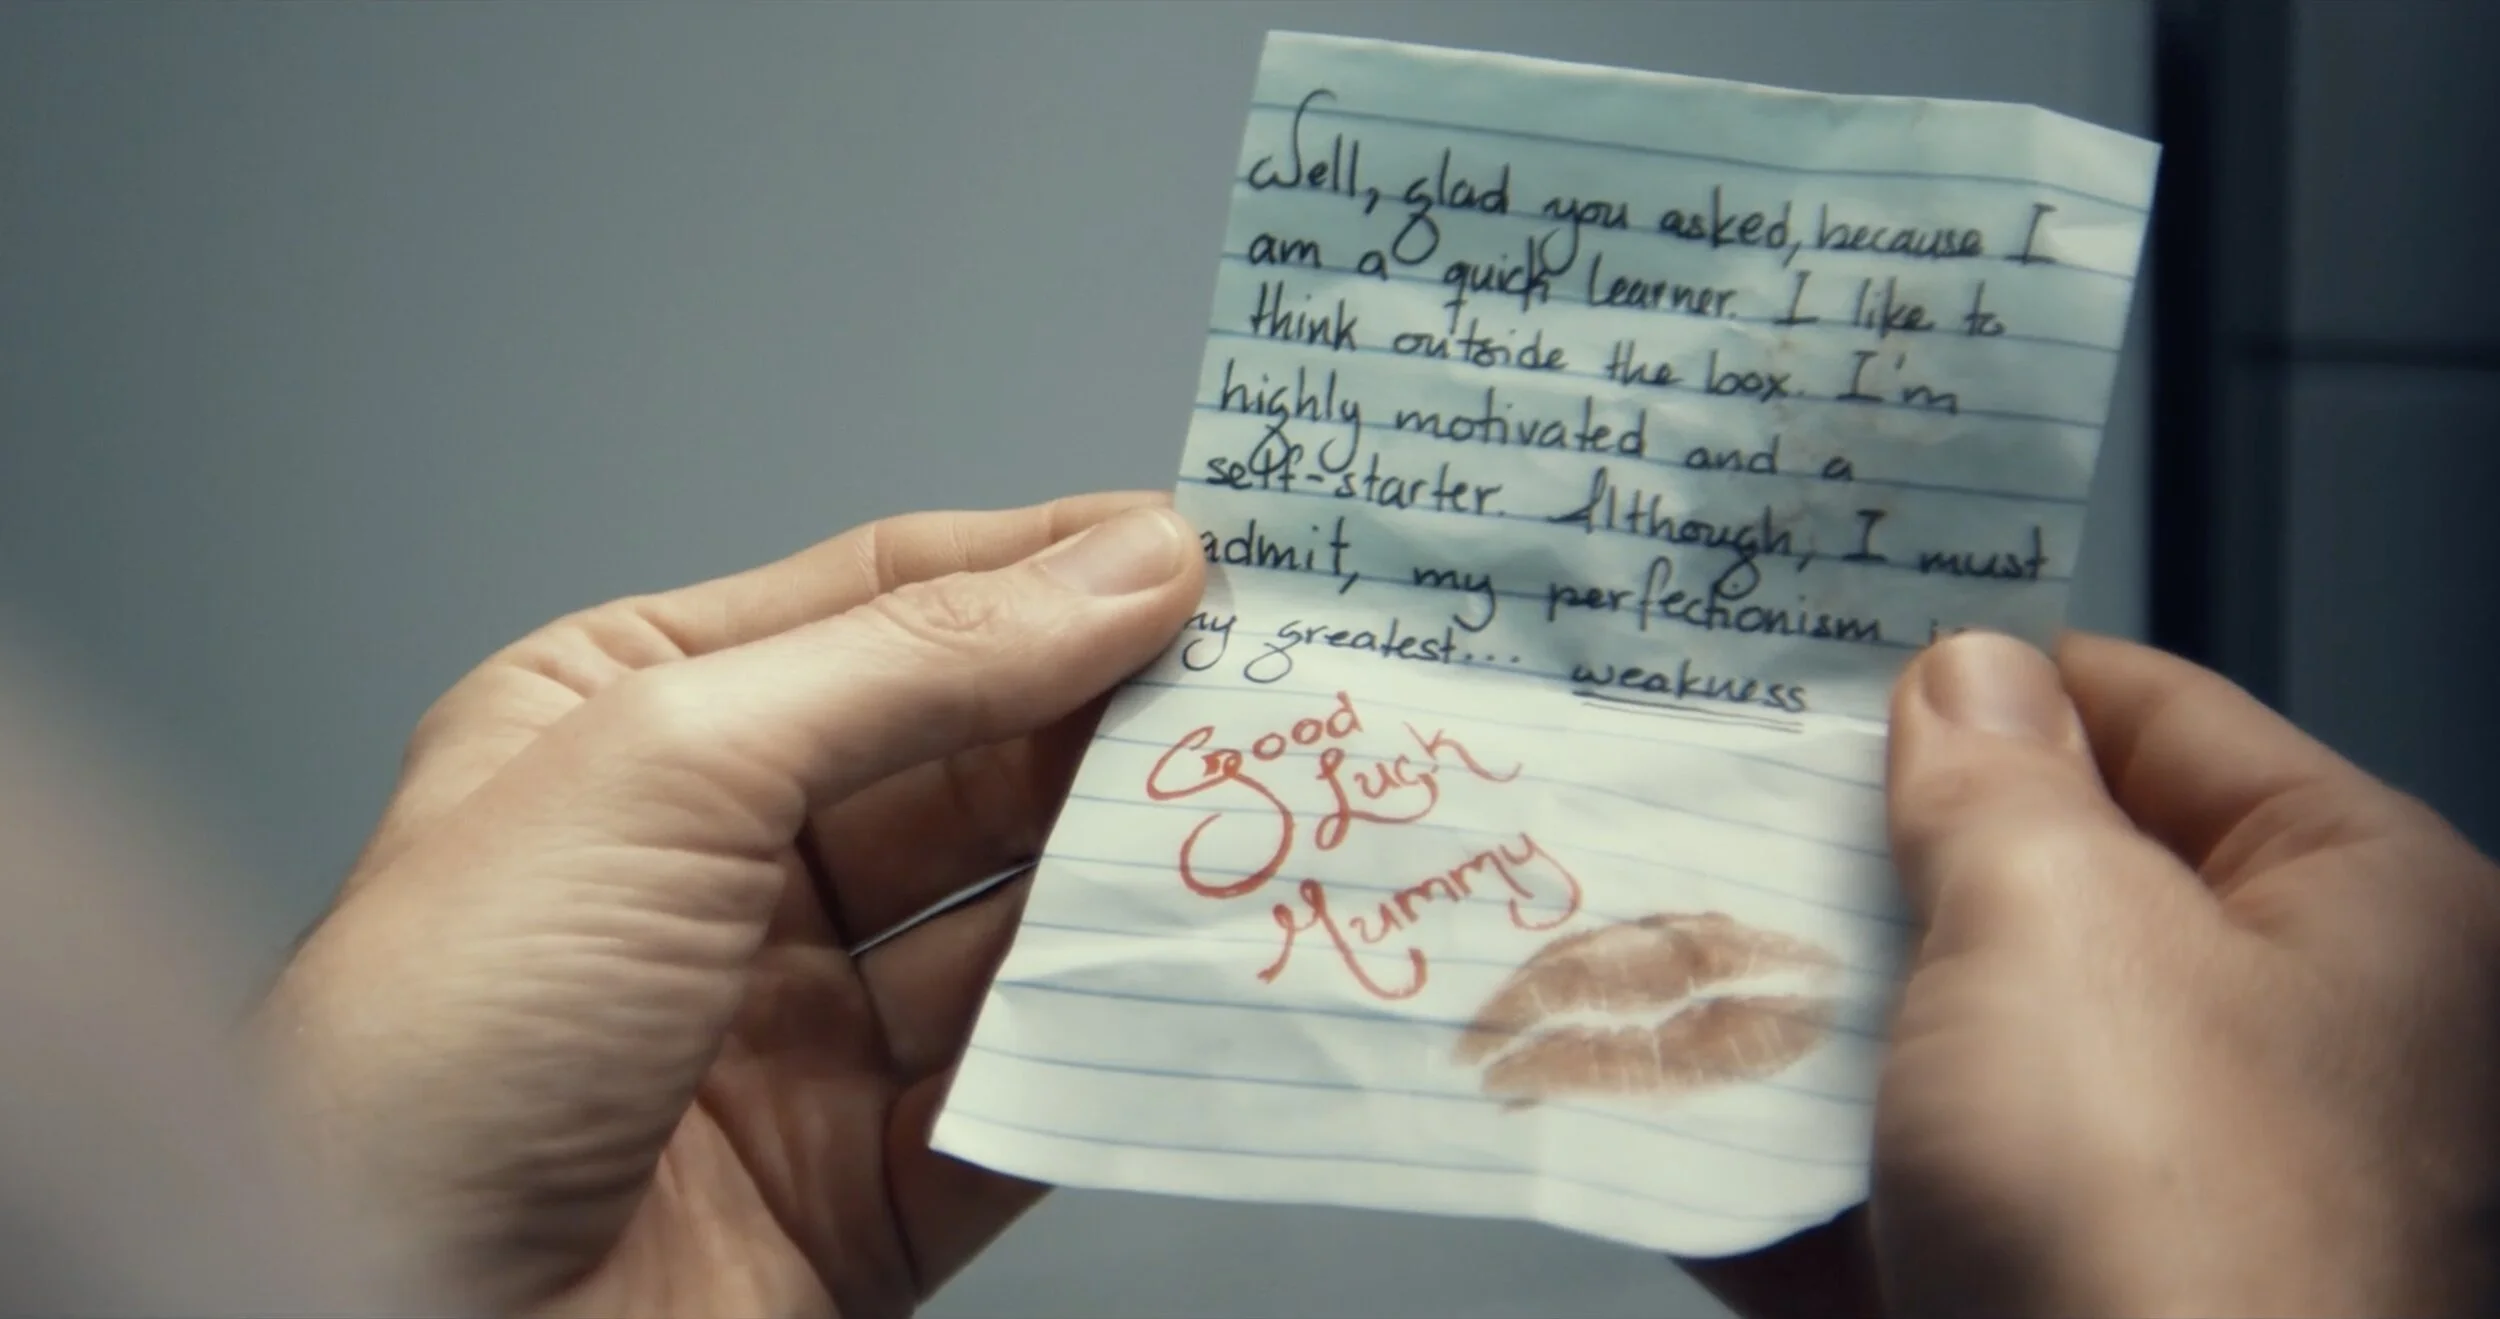 Well, glad you asked, because I
am a quick learner. I like to
think outside the box. I'm
highly motivated and a
self-starter. Although, I must
admit, my perfectionism is
my greatest... weakness
Good
Luck
Mummy